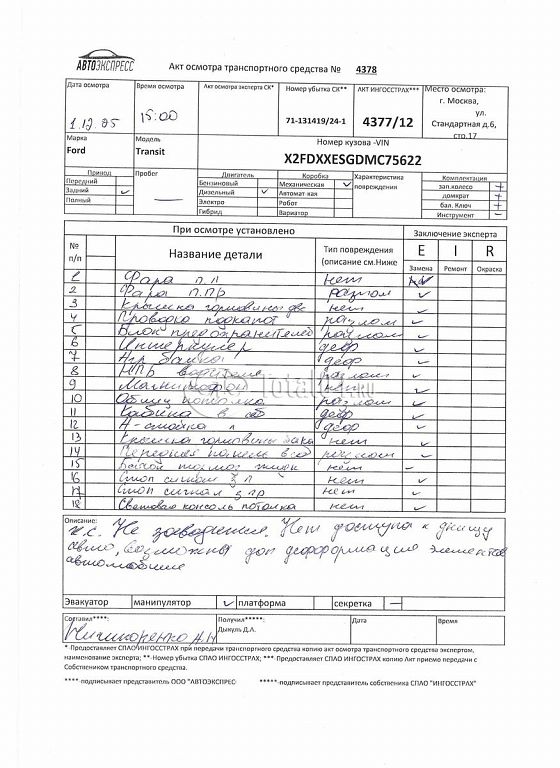 АВТОЭКСПРЕСС
Акт осмотра транспортного средства № 4378
Дата осмотра
Время осмотра
Акт осмотра эксперта СК*
Номер убытка СК**
АКТ ИНГОССТРАХ***
Место осмотра:
15:00
71-131419/24-1
4377/12
г. Москва,
ул.
Стандартная д.6,
стр.17
Марка
Модель
Номер кузова -VIN
Ford
Transit
X2FDXXESGDMC75622
Привод
Пробег
Двигатель
Коробка
Характеристика повреждения
Комплектация
Передний
Бензиновый
Механическая
зап.колесо +
Задний
Дизельный
Автомат кая
домкрат +
Полный
Электро
Робот
бал. Ключ +
Гибрид
Вариатор
Инструмент –
При осмотре установлено
Заключение эксперта
№ п/п
Название детали
Тип повреждения (описание см.Ниже
E I R
Замена Ремонт Окраска
1 Фара п.л нет
2 Фара п.пр разлом
3 Крышка горловины нет
4 Проводка подкапот разлом
5 Блок предохранителей разлом
6 Интеркулер деф
7 Аир банка деф
8 НПБ водителя разлом
9 Магнитофон нет
10 Обшив потолка разлом
11 Кабина в сб деф
12 А-стойка л деф
13 Крышка горловины бака нет
14 Передняя панель в сб разлом
15 нет
16 Стоп сигнал з л нет
17 Стоп сигнал з пр нет
18 Световая консоль потолка нет
TotalCar.RU
Описание: Не заводится. Нет доступа к днищу
авто, возможны доп деформации элементов
автомобиля
Эвакуатор манипулятор платформа секретка –
Составил****:
Получил*****:
Дата
Время
Дыкуль Д.Л.
* Предоставляет СПАО ИНГОССТРАХ при передачи транспортного средства копию акт осмотра транспортного средства экспертом,
наименование эксперта; **-Номер убытка СПАО ИНГОССТРАХ; *** -Предоставляет СПАО ИНГОССТРАХ копию Акт приемо передачи с
Собствеником транспортного средства.
****-подписывает представитель ООО "АВТОЭКСПРЕС
*****-подписывает представитель собственика СПАО "ИНГОССТРАХ"